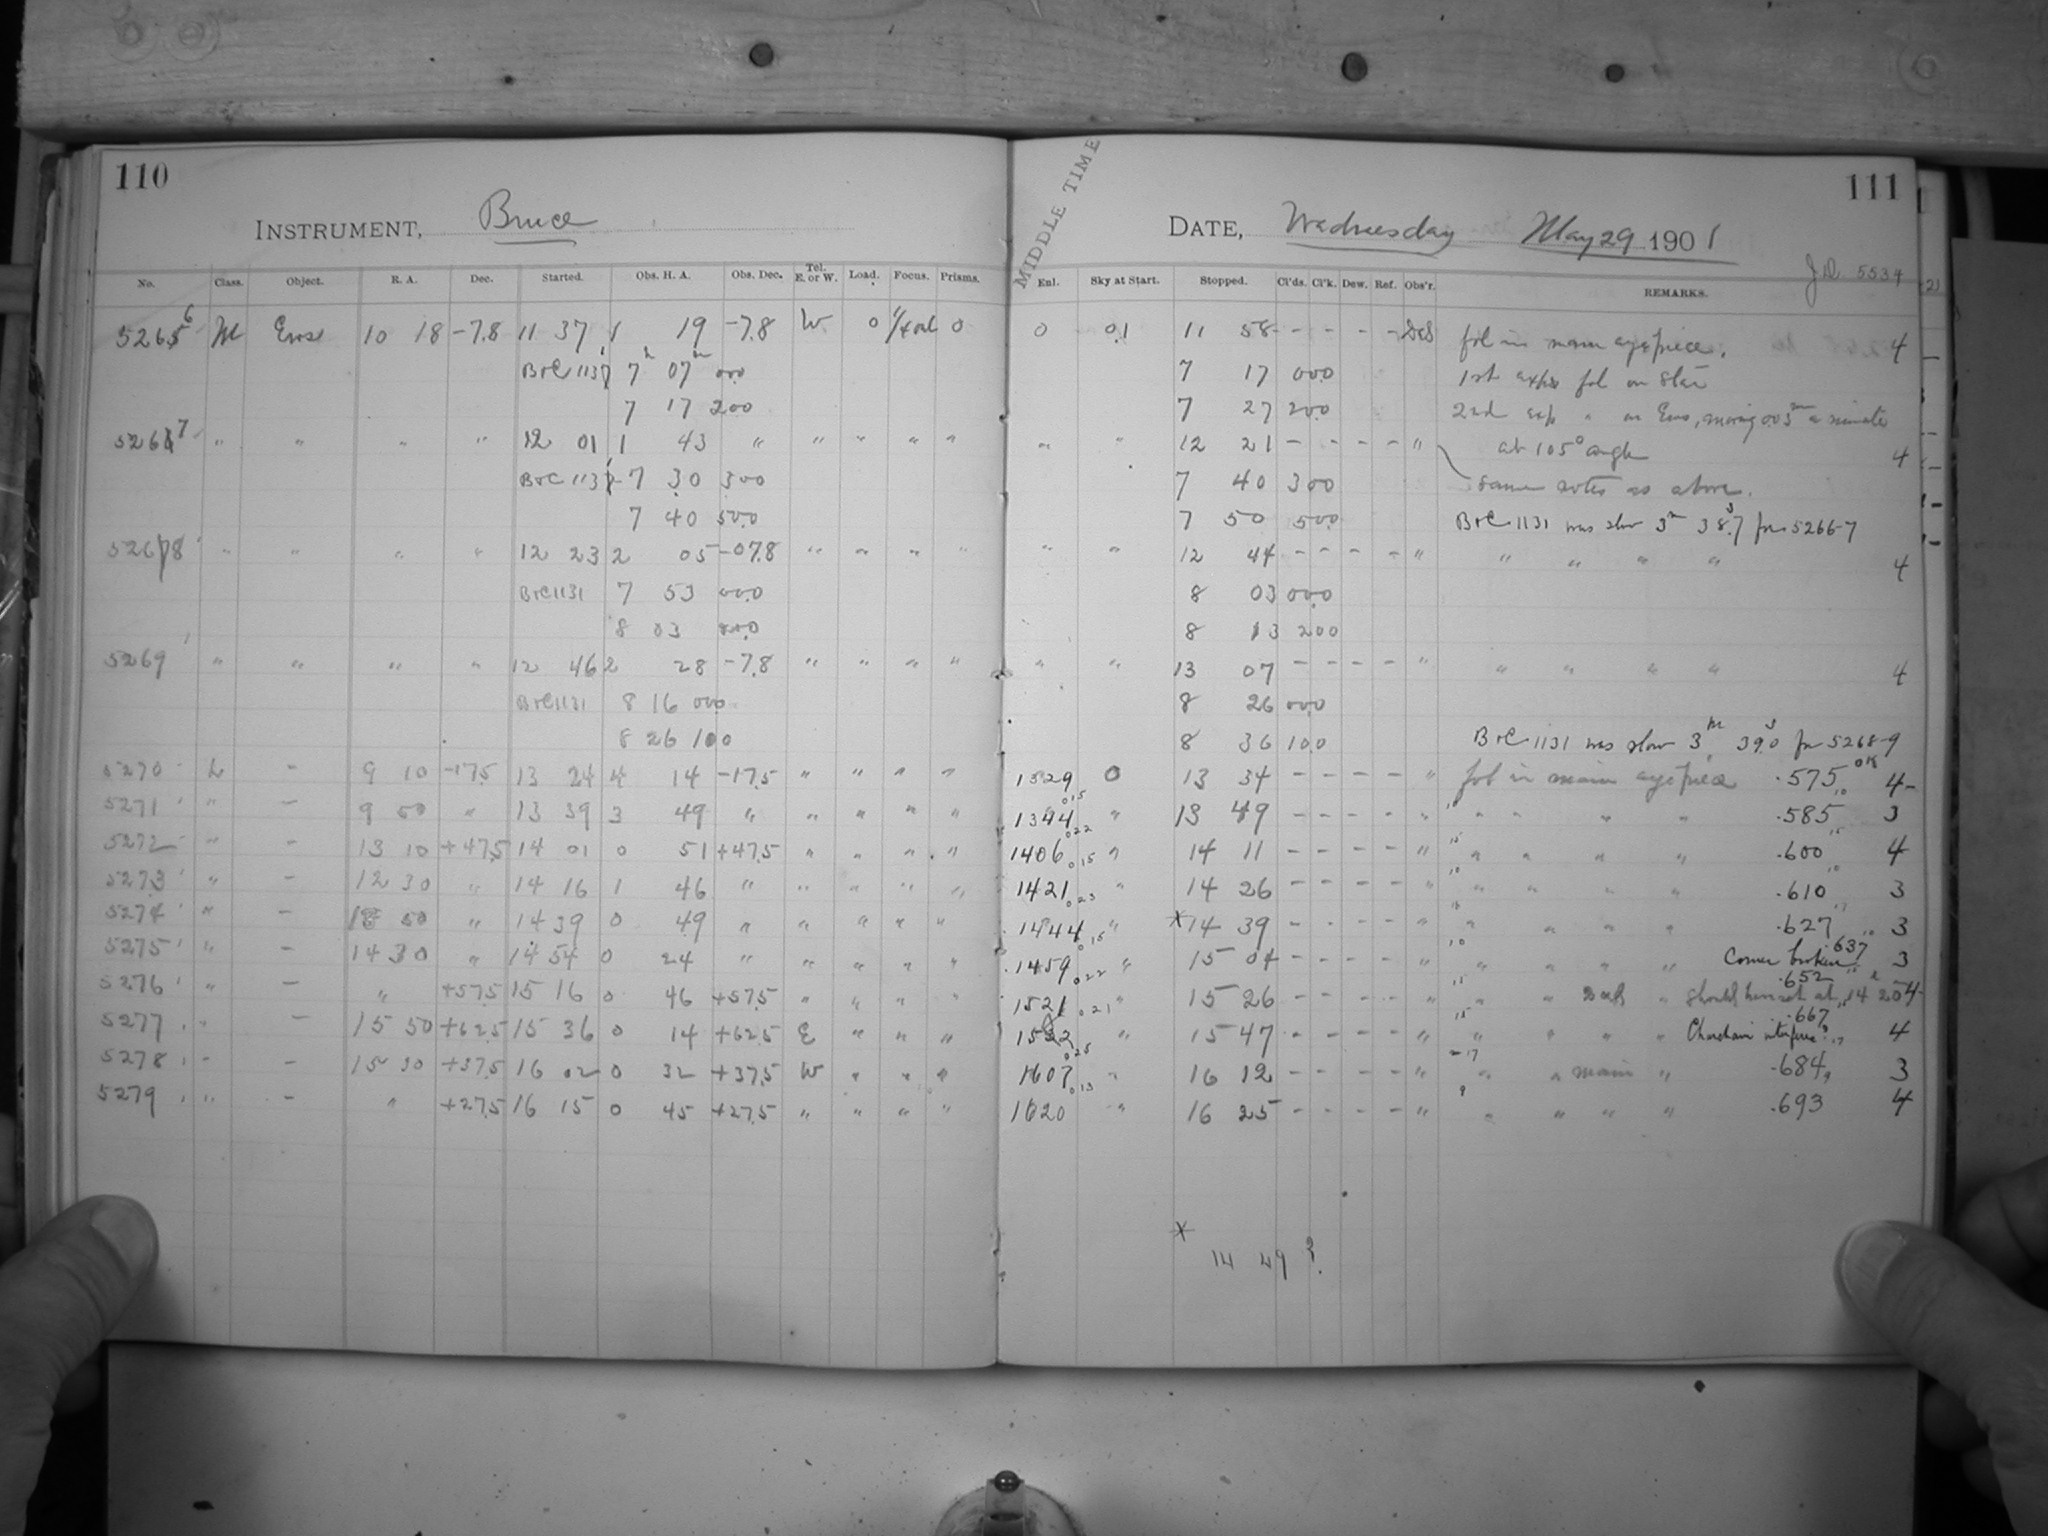 110
INSTRUMENT, Bruce
No. Class. Object. R. A. Dec. Started. Obs. H. A. Obs. Dec. Tel. E. or W. Load. Focus. Prisms.
5266 M Eros 10 18 -7.8 11 37 1 19 -7.8 W 0 0
B+C 1131 7h 07m 00.0
7 17 20.0
5267 " " " " 12 01 1 43 " " " " "
B+C 1131 7 30 30.0
7 40 50.0
5268 " " " " 12 23 2 05 -07.8 " " " "
B+C 1131 7 53 00.0
8 03 20.0
5269 " " " " 12 46 2 28 -7.8 " " " "
B+C 1131 8 16 00.0
8 26 10.0
5270 L - 9 10 -17.5 13 24 4 14 -17.5 " " " "
5271 " - 9 50 " 13 39 3 49 " " " " "
5272 " - 13 10 +47.5 14 01 0 51 +47.5 " " " "
5273 " - 12 30 " 14 16 1 46 " " " " "
5274 " - 50 " 14 39 0 49 " " " " "
5275 " - 14 30 " 14 54 0 24 " " " " "
5276 " - " +57.5 15 16 0 46 +57.5 " " " "
5277 " - 15 50 +62.5 15 36 0 14 +62.5 E " " "
5278 " - 15 30 +37.5 16 02 0 32 +37.5 W " " "
5279 " - " +27.5 16 15 0 45 +27.5 " " " "
111
MIDDLE TIME
DATE, Wednesday May 29 1901
J.D. 5534
Enl. Sky at Start. Stopped. Cl'ds. Cl'k. Dew. Ref. Obs'r. REMARKS.
0 0.1 11 58 - - - - fol in main eyepiece. 4
7 17 00.0 1st expo fol on Star
7 27 20.0 2nd exp " on Eros, moving 0.03m a minute
" " 12 21 - - - - " at 105° angle 4
7 40 30.0 same notes as above.
7 50 50.0 B+C 1131 was slow 3m 38.7s for 5266-7
" " 12 44 - - - - " " " " " 4
8 03 00.0
8 13 20.0
" " 13 07 - - - - " " " " " 4
8 26 00.0
8 36 10.0 B+C 1131 was slow 3m 39.0s for 5268-9
1329 0 13 34 - - - - " fol in main eyepiece .575 OK 4-
015 10
1344 " 13 49 - - - - " " " " " .585 3
022 15
1406 " 14 11 - - - - " " " " " .600 4
015 10
1421 " 14 26 - - - - " " " " " .610 3
023
1444 " *14 39 - - - - " " " " " .627 " 3
015 10 .637
1459 " 15 04 - - - - " " " " " Corner broken 3
022 15 .652
1521 " 15 26 - - - - " " " " should have set at 14 20 4-
021 15 .667
" 15 47 - - - - " " " " " interfered? 4
025 17
1607 " 16 12 - - - - " " " main " .684 3
013 9
1620 " 16 25 - - - - " " " " " .693 4
*
14 49 ?